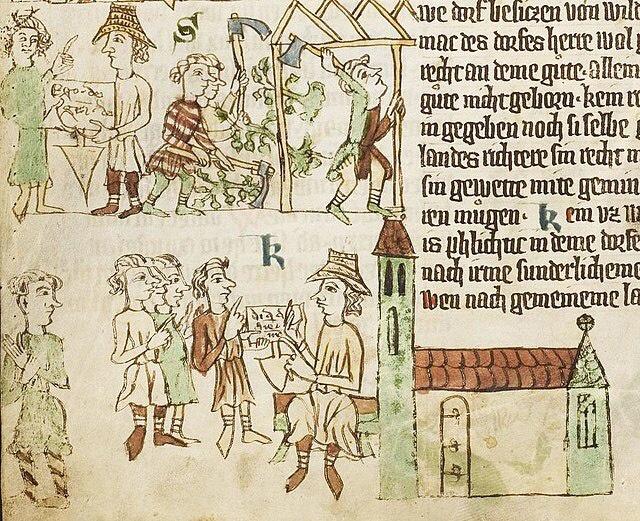 S
k
we dorf besiczen von wild
mac des dorfes herre wol
recht an deme gute· allem
gute nicht geborn· kein
in gegeben noch si selbe
landes richtere sin recht
sin gewette mite
ren mugen· k ein uz
is phlichtic in deme dorfe
nach irme sunderlichem
wen nach gemeineme la